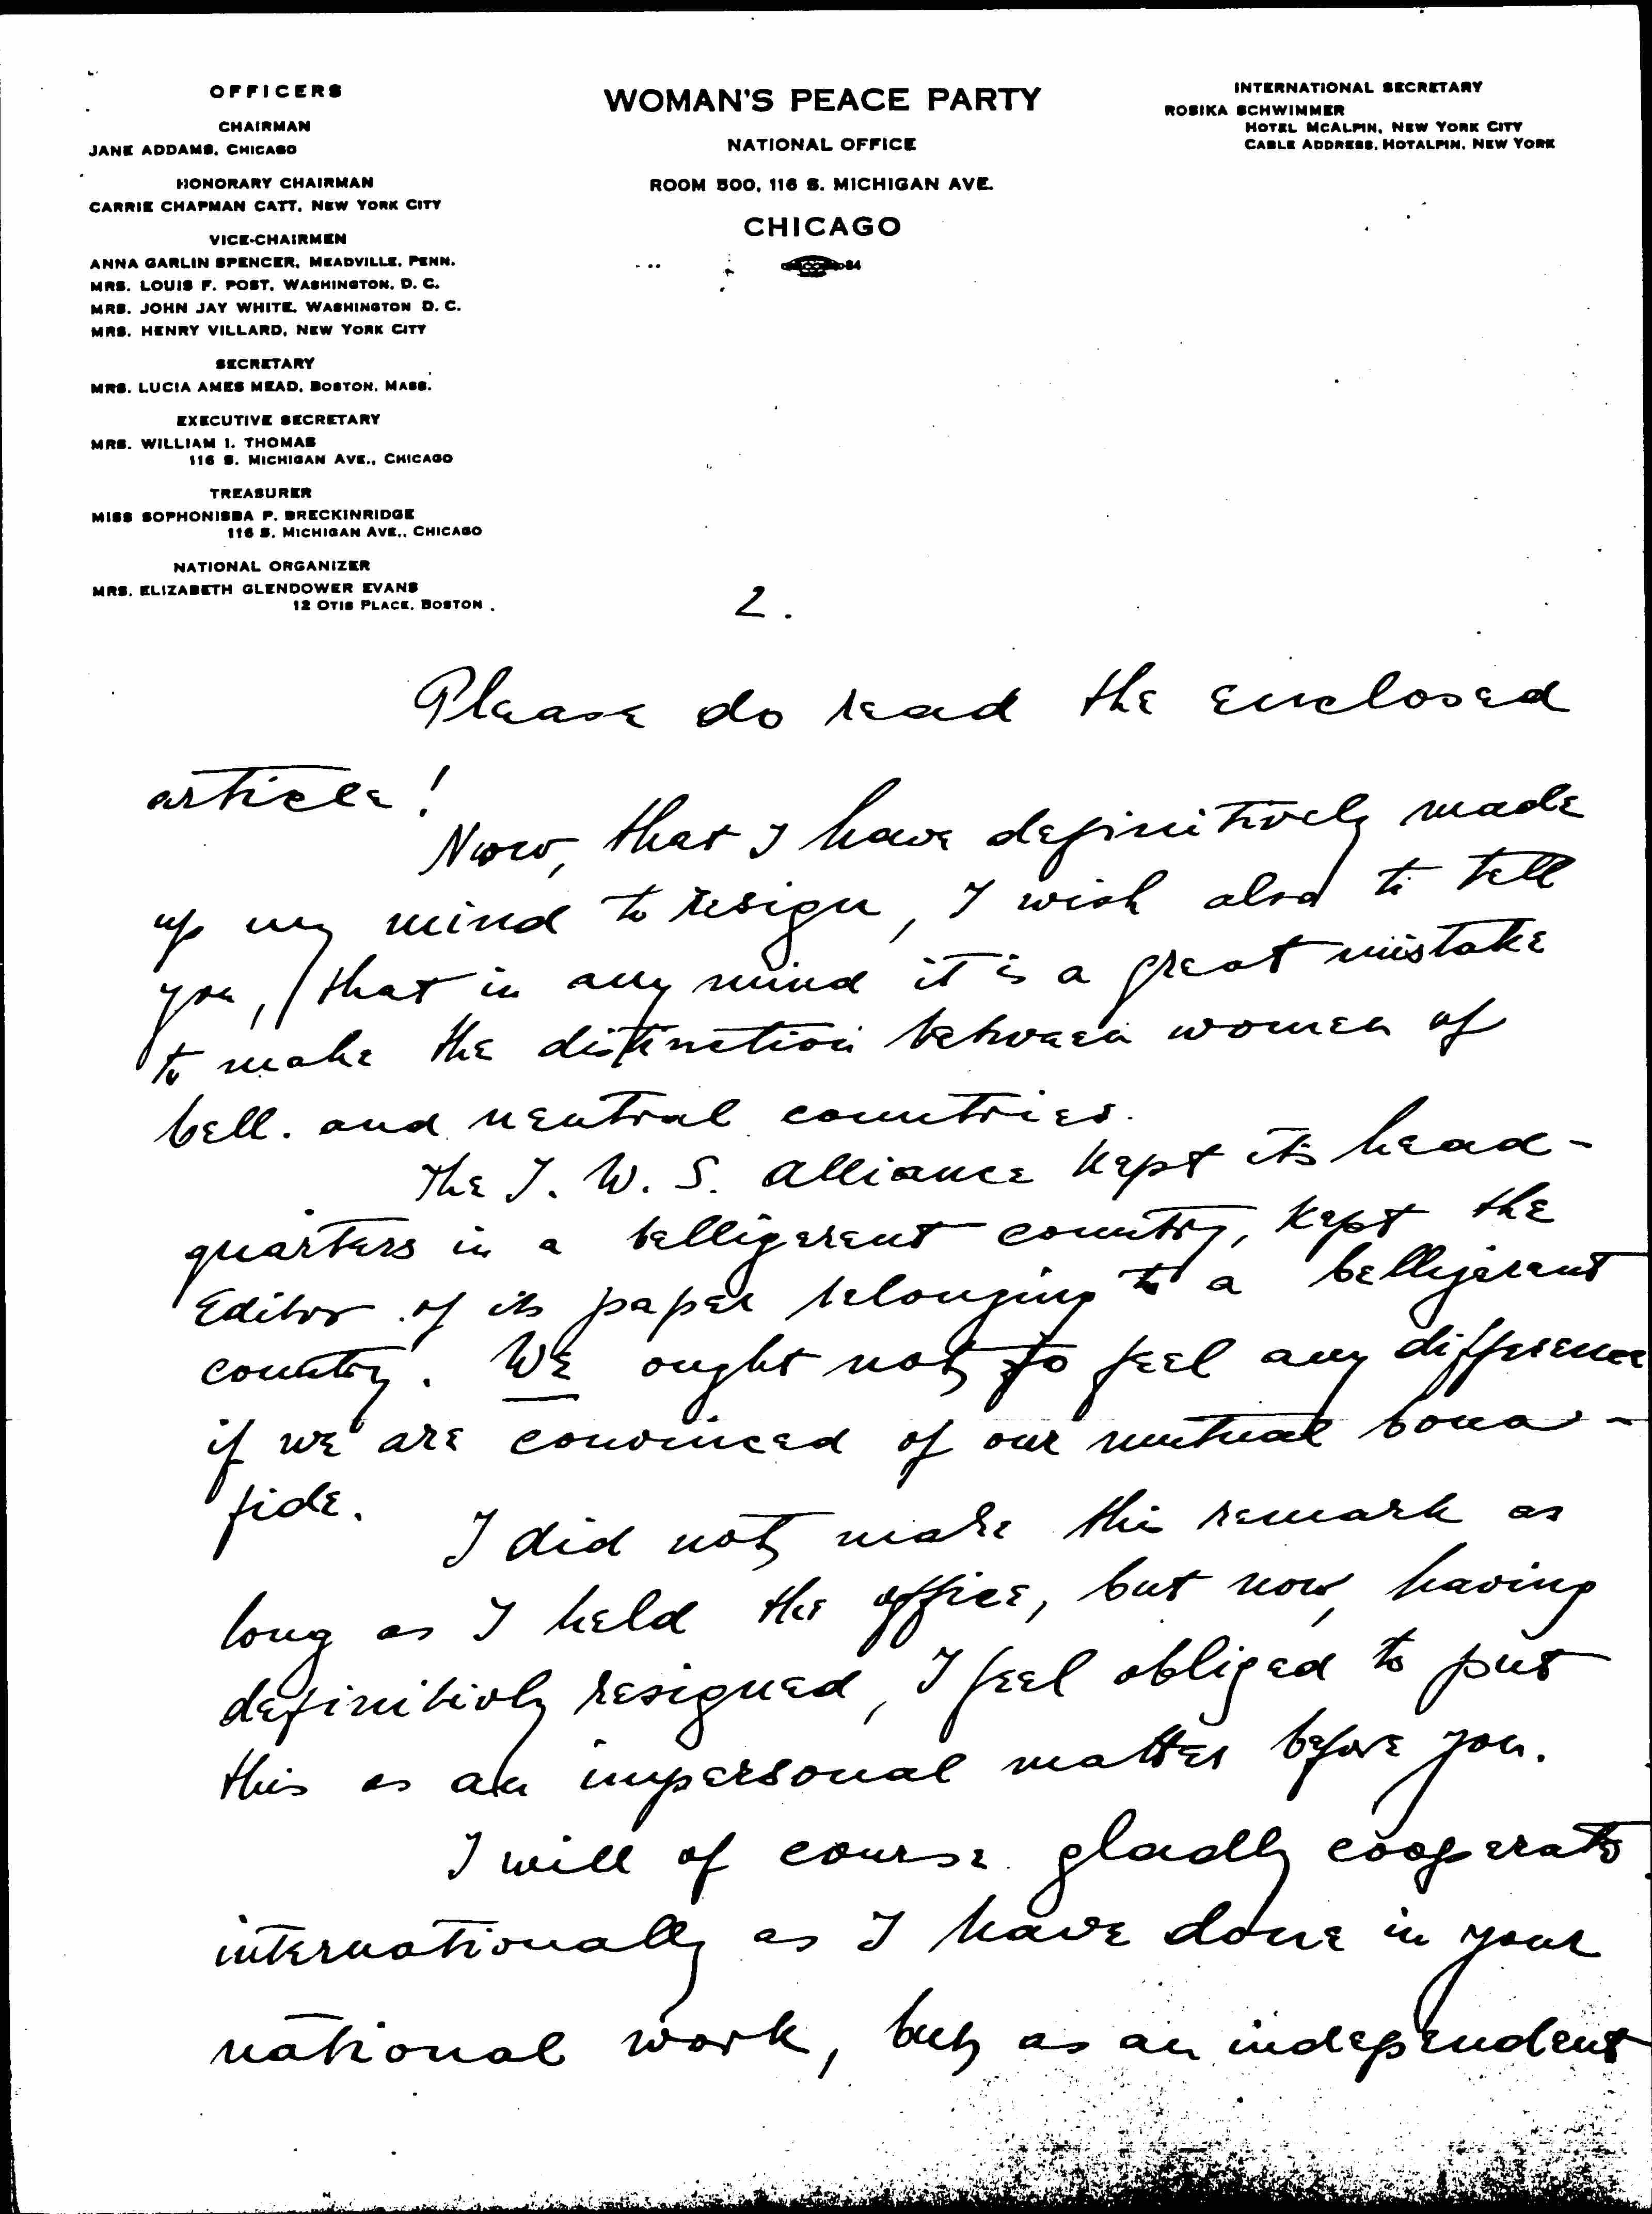 OFFICERS
CHAIRMAN
JANE ADDAMS, CHICAGO
HONORARY CHAIRMAN
CARRIE CHAPMAN CATT, NEW YORK CITY
VICE-CHAIRMEN
ANNA GARLIN SPENCER, MEADVILLE, PENN.
MRS. LOUIS F. POST, WASHINGTON, D. C.
MRS. JOHN JAY WHITE, WASHINGTON D. C.
MRS. HENRY VILLARD, NEW YORK CITY
SECRETARY
MRS. LUCIA AMES MEAD, BOSTON, MASS.
EXECUTIVE SECRETARY
MRS. WILLIAM I. THOMAS
116 S. MICHIGAN AVE., CHICAGO
TREASURER
MISS SOPHONISBA P. BRECKINRIDGE
116 S. MICHIGAN AVE., CHICAGO
NATIONAL ORGANIZER
MRS. ELIZABETH GLENDOWER EVANS
12 OTIS PLACE, BOSTON.
WOMAN'S PEACE PARTY
NATIONAL OFFICE
ROOM 500, 116 S. MICHIGAN AVE.
CHICAGO
84
INTERNATIONAL SECRETARY
ROSIKA SCHWIMMER
HOTEL MCALPIN, NEW YORK CITY
CABLE ADDRESS, HOTALPIN, NEW YORK
2.
Please do read the enclosed
article!
Now, that I have definitively made
up my mind to resign, I wish also to tell
you, that in my mind it is a great mistake
to make the distinction between women of
bell. and neutral countries.
The I. W. S. Alliance kept its head-
quarters in a belligerent country, kept the
Editor of its paper belonging to a belligerent
country. We ought not to feel any difference
if we are convinced of our mutual bona-
fide.
I did not make this remark as
long as I held the office, but now, having
definitivly resigned, I feel obliged to put
this as an impersonal matter before you.
I will of course gladly coöperate
internationally as I have done in your
national work, but as an independent